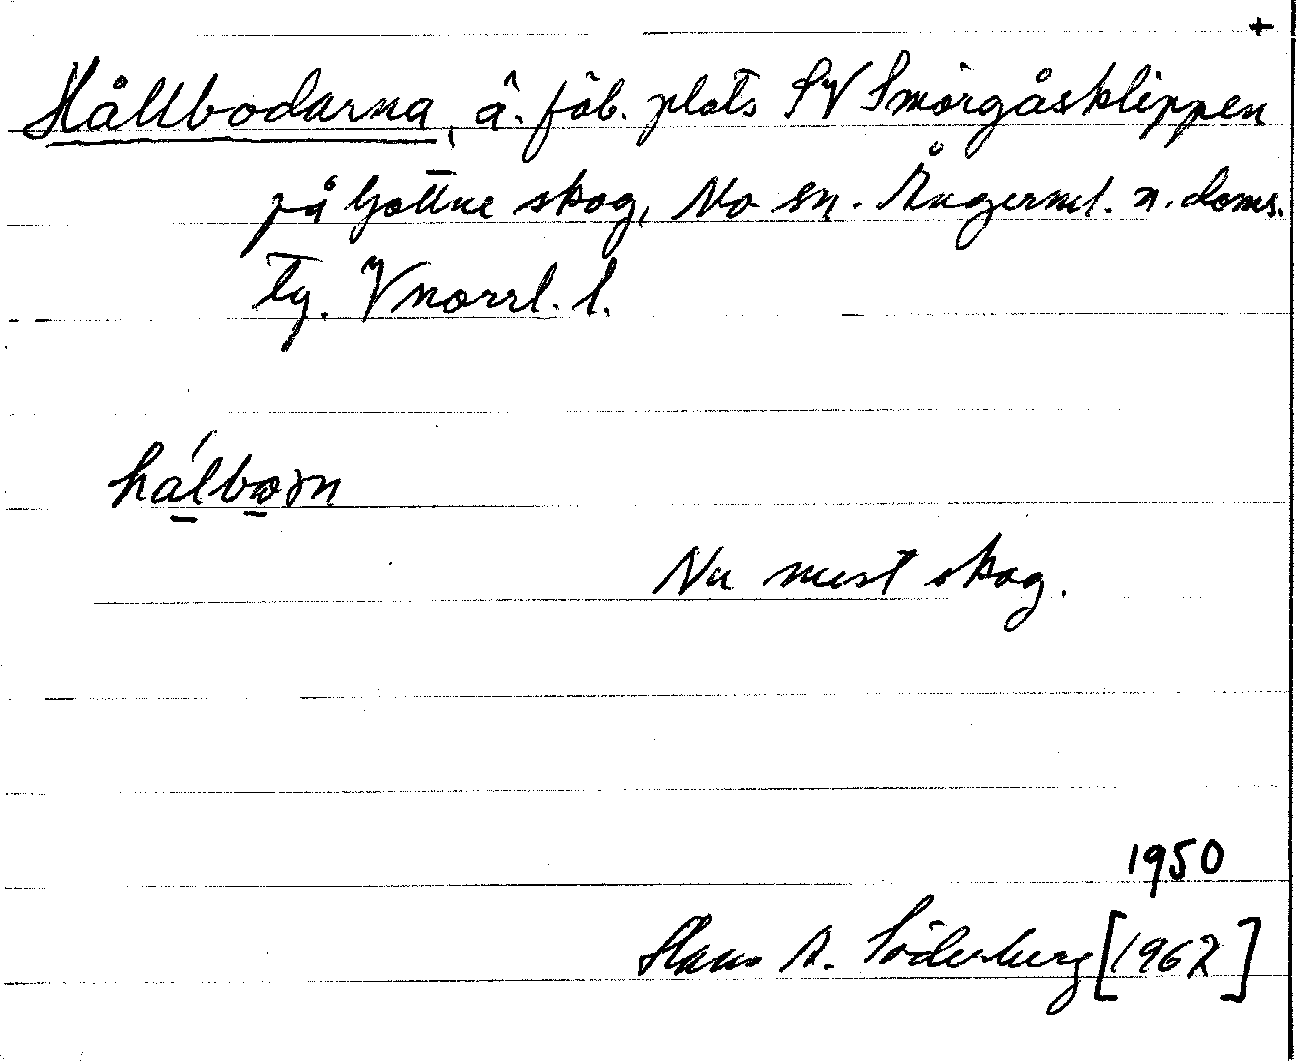 +
Hållbodarna, â. fäb. plats SV Smörgåsklippen
på Gottne skog, Mo sn. Ångerml. n. doms.
tg. Vnorrl. l.
Nu mest skog.
1950
Hans A. Söderberg [1962]